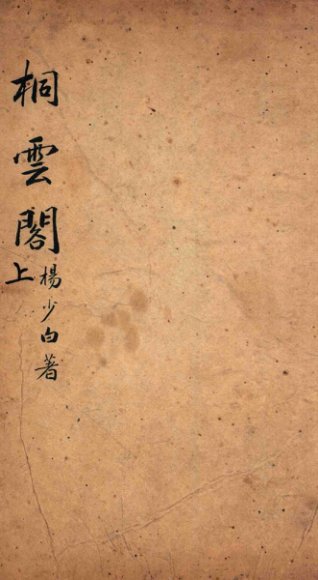 桐雲閣上
楊少白著